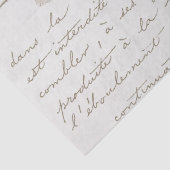 dans la
est interdite
combler à ses
produite à la
l'éboulement
continua